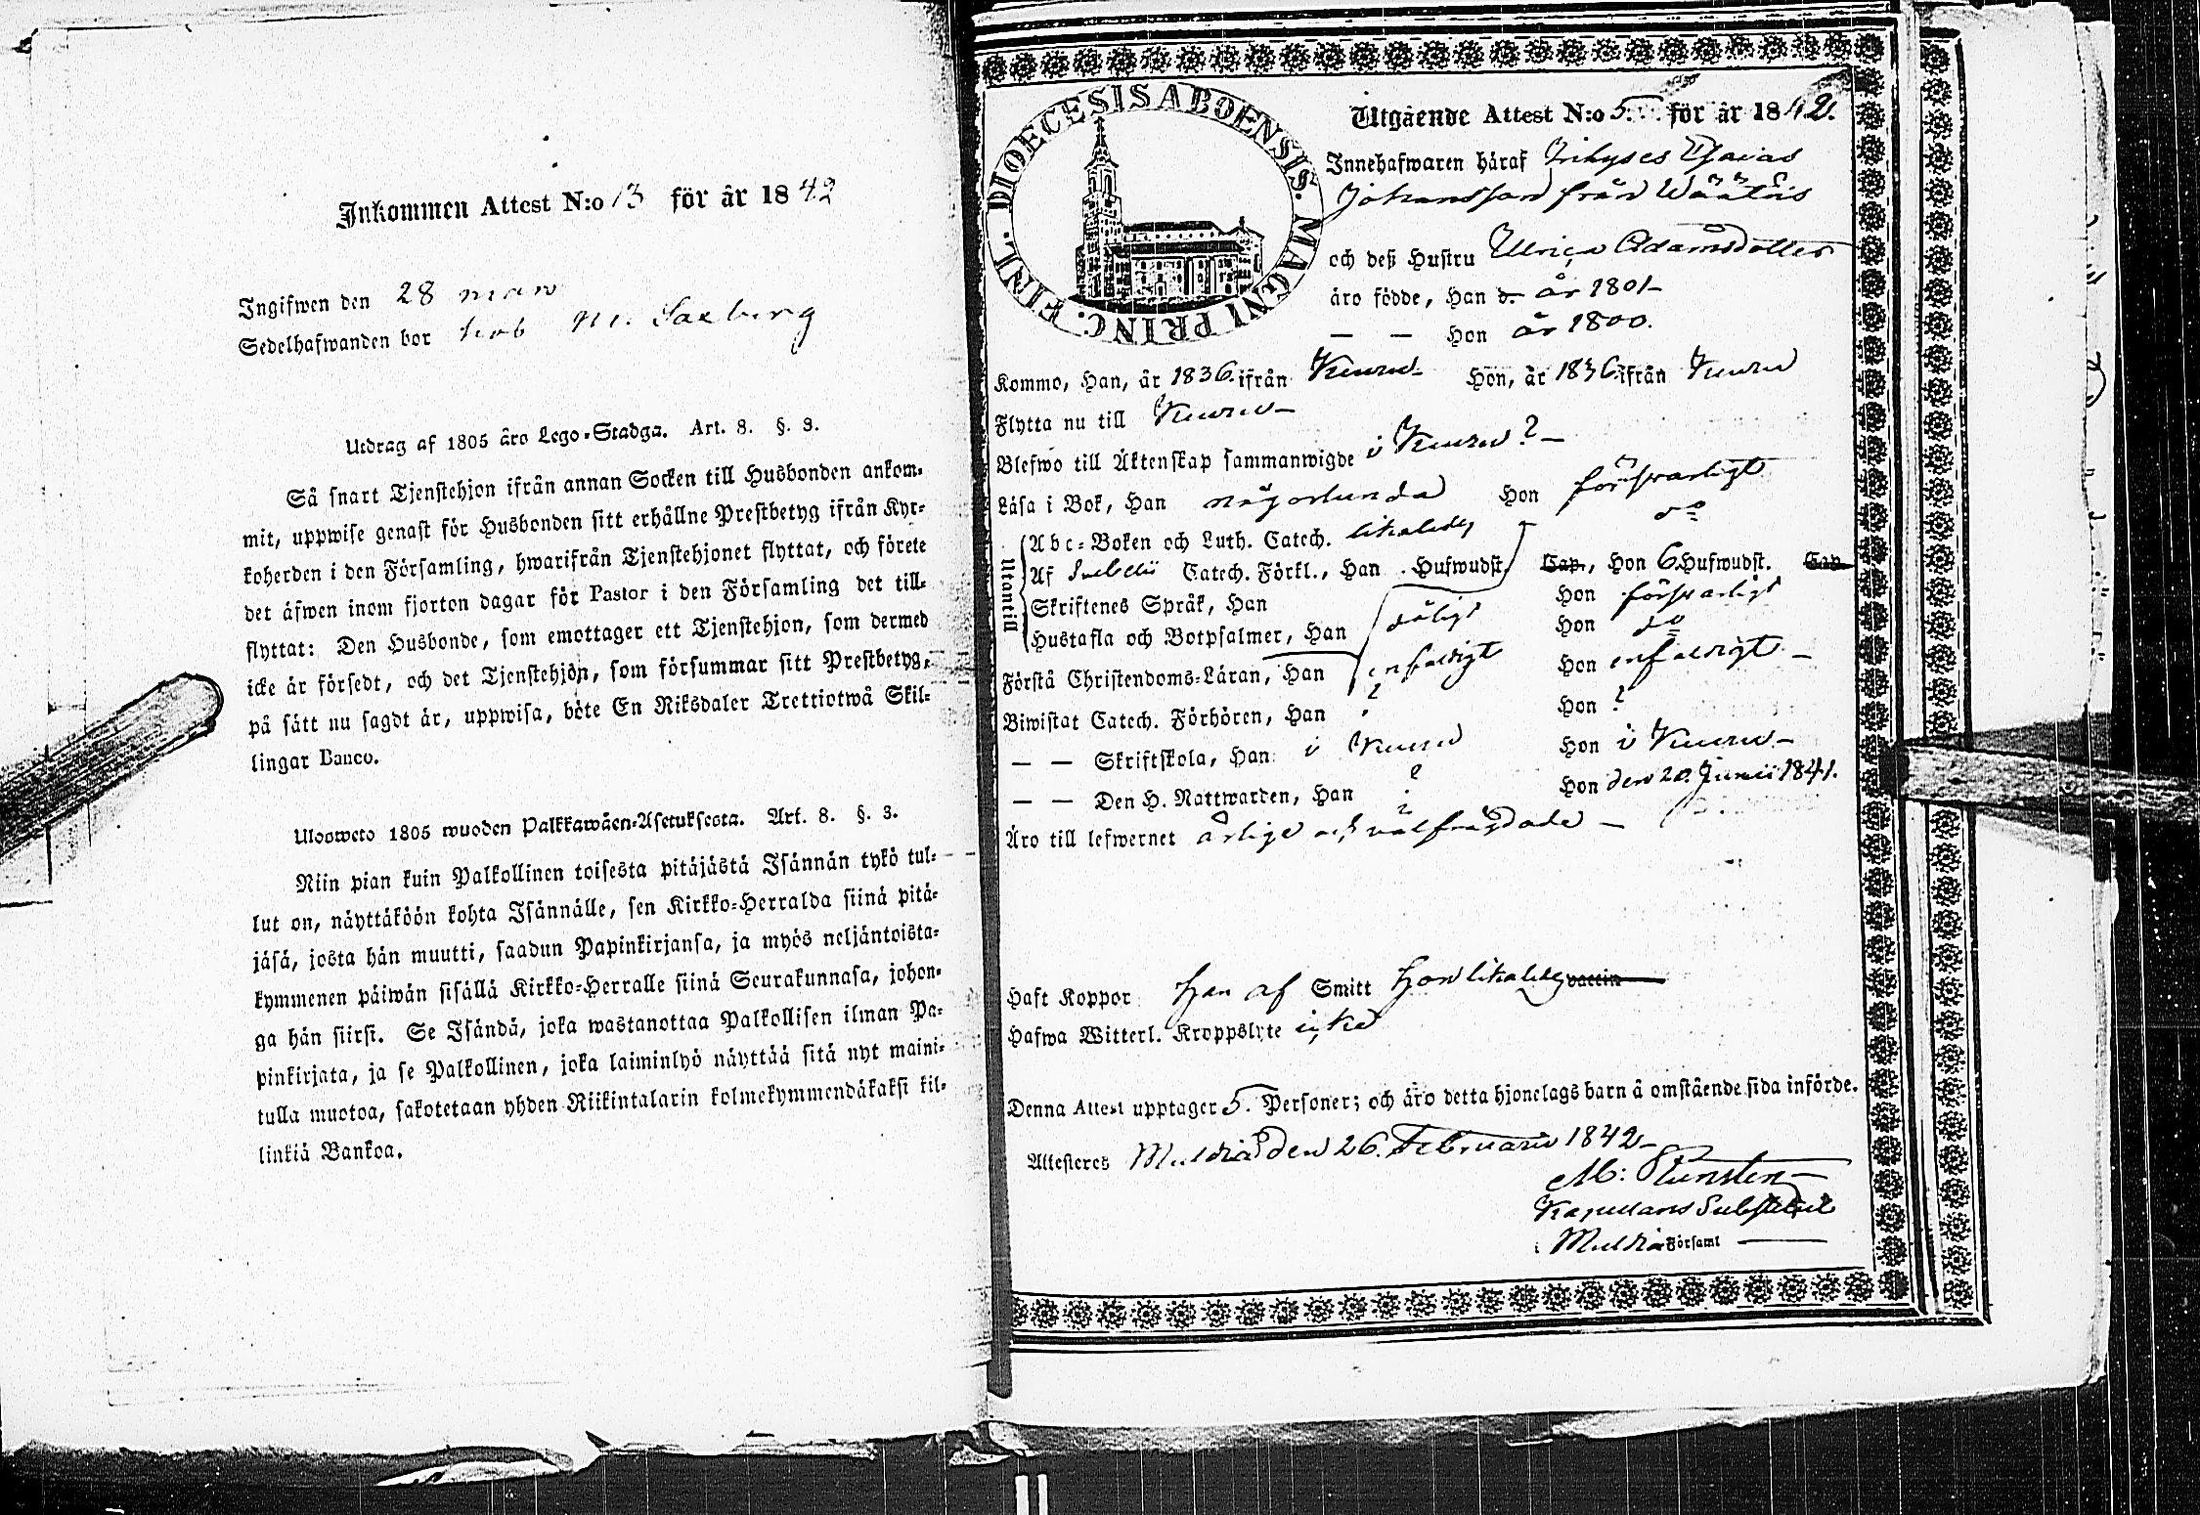 Inkommen Attest N:o 13 för år 1842
Ingifwen den 28 mars
Sedelhafwanden bor hos M. Saxberg
Utdrag af 1805 års Lego-Stadga. Art. 8. §. 3.
Så snart Tjenstehjon ifrån annan Socken till Husbonden ankom-
mit, uppwise genast för Husbonden sitt erhållne Prestbetyg ifrån Kyr-
koherden i den Församling, hwarifrån Tjenstehjonet flyttat, och förete
det äfwen inom fjorton dagar för Pastor i den Församling det till-
flyttat: Den Husbonde, som emottager ett Tjenstehjon, som dermed
icke är försedt, och det Tjenstehjon, som försummar sitt Prestbetyg,
på sätt nu sagdt är, uppwisa, böte En Riksdaler Trettiotwå Skil-
lingar Banco.
Ulosweto 1805 wuoden Palkkawäen-Asetuksesta. Art. 8. §. 3.
Niin pian kuin Palkollinen toisesta pitäjästä Isännän tykö tul-
lut on, näyttäköön kohta Isännälle, sen Kirkko-Herralda siinä pitä-
jäsä, josta hän muutti, saadun Papinkirjansa, ja myös neljäntoista-
kymmenen päiwän sisällä Kirkko-Herralle siinä Seurakunnasa, johon-
ga hän siirsi. Se Isändä, joka wastanottaa Palkollisen ilman Pa-
pinkirjata, ja se Palkollinen, joka laiminlyö näyttää sitä nyt maini-
tulla muotoa, sakotetaan yhden Riikintalarin kolmekymmendäkaksi kil-
linkiä Bankoa.
DIOECESIS ABOENSIS. MAGNI PRINC. FINL.
Utgående Attest N:o 5. för år 1842.
Innehafwaren häraf Esaias
Johansson från
och deß Hustru Ulrica Adamsdotter
äro födde, Han d. år 1801
— — Hon år 1800.
Kommo, Han, år 1836. ifrån Kuru Hon, år 1836. ifrån Kuru
Flytta nu till Kuru
Blefwo till Äktenskap sammanwigde i Kuru?
Läsa i Bok, Han någorlunda Hon försvarligt
Utantill
Abc-Boken och Luth. Catech. likaledes do
Af Svebelii Catech. Förkl., Han Hufwudst. Cap., Hon 6 Hufwudst. Cap
Skriftenes Språk, Han Hon försvarligt
Hustafla och Botpsalmer, Han dåligt Hon do
Förstå Christendoms-Läran, Han enfaldigt Hon enfaldigt
Biwistat Catech. Förhören, Han ? Hon ?
— — Skriftskola, Han i Kuru Hon i Kuru
— — Den H. Nattwarden, Han ? Hon den 20. Junii 1841.
Äro till lefwernet ärlige och välfrägdade
Haft Koppor Han af Smitt Hon likaledes vaccin
Hafwa Witterl. Kroppslyte icke
Denna Attest upptager 5. Personer; och äro detta hjonelags barn å omstående sida införde.
Attesteres Muldia den 26. Februarii 1842
Kapellans Substitut
i Muldia Församl